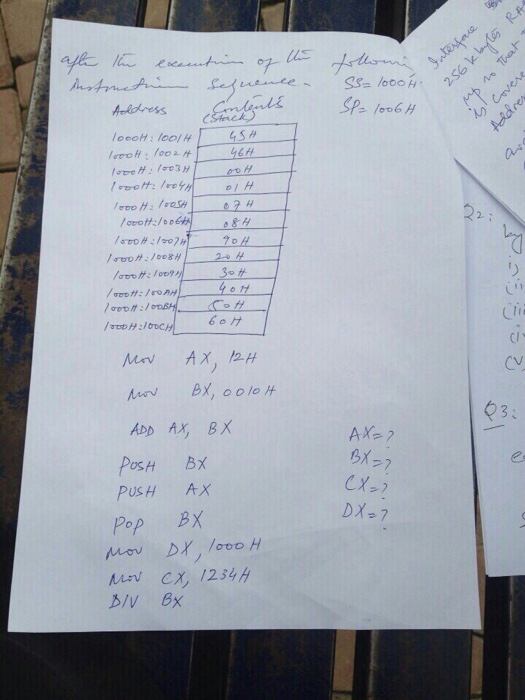 after the execution of the following
Instruction Sequence.
SS= 1000H
SP= 1006H
Address Contents
(Stack)
1000H:1001H 45H
1000H:1002H 46H
1000H:1003H 00H
1000H:1004H 01H
1000H:1005H 07H
1000H:1006H 08H
1000H:1007H 90H
1000H:1008H 20H
1000H:1009H 30H
1000H:100AH 40H
1000H:100BH 50H
1000H:100CH 60H
Mov AX, 12H
Mov BX, 0010H
ADD AX, BX
PUSH BX
PUSH AX
POP BX
Mov DX, 1000H
Mov CX, 1234H
DIV BX
AX=?
BX=?
CX=?
DX=?
Interface
256 k bytes RA
up so that
is cover
Addre
Q2:
i)
(ii
(iii
(i
(V
Q3: